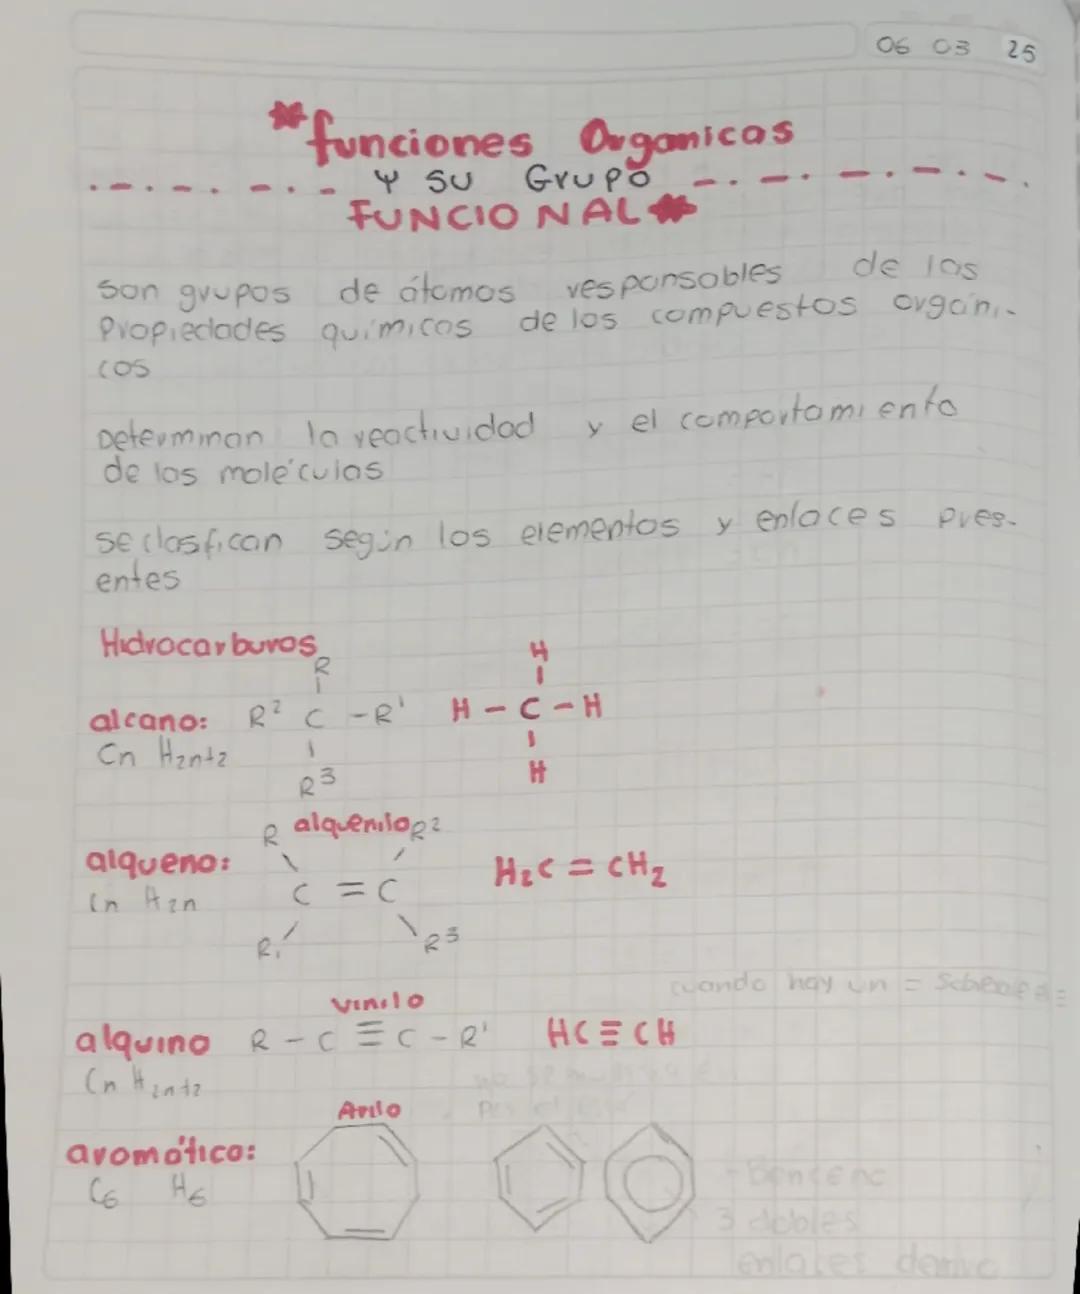 06 03 25
*funciones Organicas
Y SU Grupo
FUNCIONAL*
son grupos de átomos responsables de las
Propiedades químicas de los compuestos orgáni-
cos
Determinan la reactividad y el comportamiento
de las moléculas
se clasfican según los elementos y enlaces pres-
entes
Hidrocarburos
R
H
alcano: R² C - R' H - C - H
Cn H2n+2
R³
H
R alquenilo R²
alqueno:
C = C H2C = CH2
Cn H2n
R1 R³
cuando hay un =
vinilo
alquino R - C ≡ C - R' HC ≡ CH
Cn H2n+2
Arilo
aromático:
C6 H6
- Benceno
3 dobles
enlaces